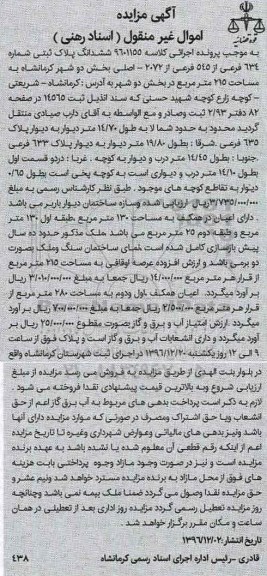 آگهی مزایده
اموال غیر منقول ( اسناد رهنی )
به موجب پرونده اجرائی کلاسه ۹۶۰۱۱۵۵ ششدانگ پلاک ثبتی شماره
۶۳۴ فرعی از ۵۴۵ فرعی از ۲۰۷۲ – اصلی بخش دو شهر کرمانشاه به
مساحت ۲۱۵ متر مربع در بخش دو شهر به آدرس : کرمانشاه – شریعتی
– کوچه زارع کوچه شهید حسنی که سند انذیل ثبت ۱۴۵۶۵ در صفحه
۸۲ دفتر ۲/۹۳ ثبت وصادر و مع الواسطه به آقای دارب صیادی منتقل
گردید محدود به حدود شما لا به طول ۱۴/۷۰ متر دیوار به دیوار پلاک
۶۳۵ فرعی .شرقا : بطول ۱۹/۸۰ متر دیوار به دیوار پلاک ۶۳۳ فرعی
.جنوبا : بطول ۱۴/۴۵ متر درب و دیوار به کوچه . غربا : دردو قسمت اول
بطول ۱۴/۱۰ متر درب و دیواری است به کوچه پخی است بطول ۰/۶۵
دیوار به تقاطع کوچه های موجود . طبق نظر کارشناس رسمی به مبلغ
۳/۷۳۵/۰۰۰/۰۰۰ ریال ارزیابی شده وملک دارای ساختمان دیوار باربر می باشد
. دارای اعیان در همکف به مساحت ۱۳۰ متر مربع .طبقه اول ۱۳۰ متر
مربع و طبقه دوم ۲۵ متر مربع می باشد .ملک مذکور حدود ده سال
پیش بازسازی کامل شده است .نمای ساختمان سنگ وملک بصورت
دو برمی باشد و ارزش افزوده عرصه اوقافی به مساحت ۲۱۵ متر مربع
از قرار هر متر مربع ۱۴/۰۰۰/۰۰۰ ریال جمعا به مبلغ ۳/۰۱۰/۰۰۰/۰۰۰ ریال
بر آورد میگردد. اعیان همکف .اول ودوم به مساحت ۲۸۰ متر مربع از
قرار هر متر مربع ۲/۵۰۰/۰۰۰ ریال جمعا به مبلغ ۷۰۰/۰۰۰/۰۰۰ ریال بر آورد
میگردد .ارزش امتیاز آب و برق و گاز بصورت مقطوع ۲۵/۰۰۰/۰۰۰ ریال بر
آورد میگردد و دارای انشعابات آب و برق و گاز است و پلاک فوق از ساعت
۹ الی ۱۲ روز یکشنبه ۱۳۹۶/۱۲/۲۰ در اجرای ثبت شهرستان کرمانشاه واقع
در بلوار بنت الهدی از طریق مزایده به فروش می رسد مزایده از مبلغ
ارزیابی شروع و به بالاترین قیمت پیشنهادی نقدا فروخته می شود .
لازم به ذکر است پرداخت بدهی های مربوط به آب برق گاز اعم از حق
انشعاب ویا حق اشتراک ومصرف در صورتی که موارد مزایده دارای آنها
باشد ونیز بدهی های مالیاتی وعوارض شهرداری وغیره تا تاریخ مزایده
اعم از اینکه رقم قطعی آن معلوم شده یا نشده باشد به عهده برنده
مزایده است و نیز در صورت وجود مازاد وجوه پرداختی بابت هزینه
های فوق از محل مازاد به برنده مزایده مسترد خواهد شد ونیم عشر و
حق مزایده نقدا وصول می گردد ضمنا ملک بیمه نمی باشد وچنانچه
روز مزایده تعطیل رسمی گردد مزایده روز اداری بعد از تعطیلی در همان
ساعت و مکان مقرر برگزار خواهد شد .
تاریخ انتشار: ۱۳۹۶/۱۲/۰۲
قادری – رئیس اداره اجرای اسناد رسمی کرمانشاه
۴۳۸